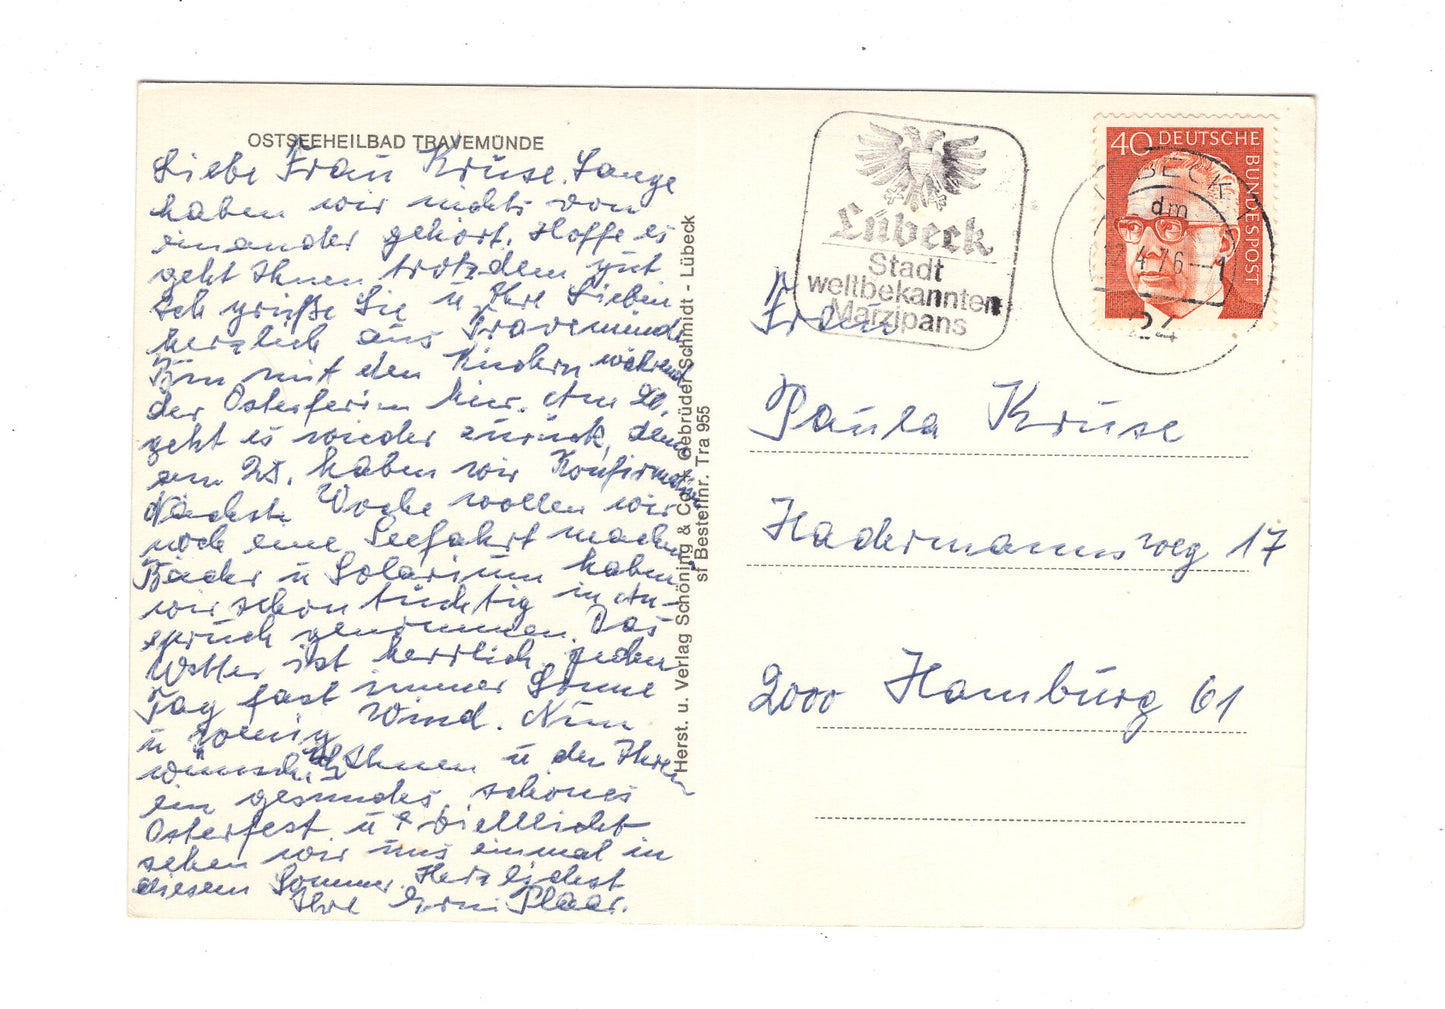 OSTSEEHEILBAD TRAVEMÜNDE
Liebe Frau Kruse. Lange
haben wir nichts von
einander gehört. Hoffe es
geht Ihnen trotzdem gut
Ich grüße Sie u Ihre Lieben
herzlich aus Travemünde
Bin mit den Kindern während
der Osterferien hier. Am 20.
geht es wieder zurück, denn
am 25. haben wir Konfirmation
Nächste Woche wollen wir
noch eine Seefahrt machen
Bäder u Solarium haben
wir schon tüchtig in An-
spruch genommen. Das
Wetter ist herrlich, jeden
Tag fast immer Sonne
u wenig Wind. Nun
wünsche ich Ihnen u den Ihren
ein gesundes, schönes
Osterfest u vielleicht
sehen wir uns einmal in
diesem Sommer. Herzlichst
Ihre Erni Plaar.
Herst. u. Verlag Schöning & Co + Gebrüder Schmidt - Lübeck
sf Bestellnr. Tra 955
Lübeck
Stadt
weltbekannten
Marzipans
40 DEUTSCHE
BUNDESPOST
LÜBECK 1
dm
12.4.76-- 1
24
Frau
Paula Kruse
Hadermannsweg 17
2000 Hamburg 61